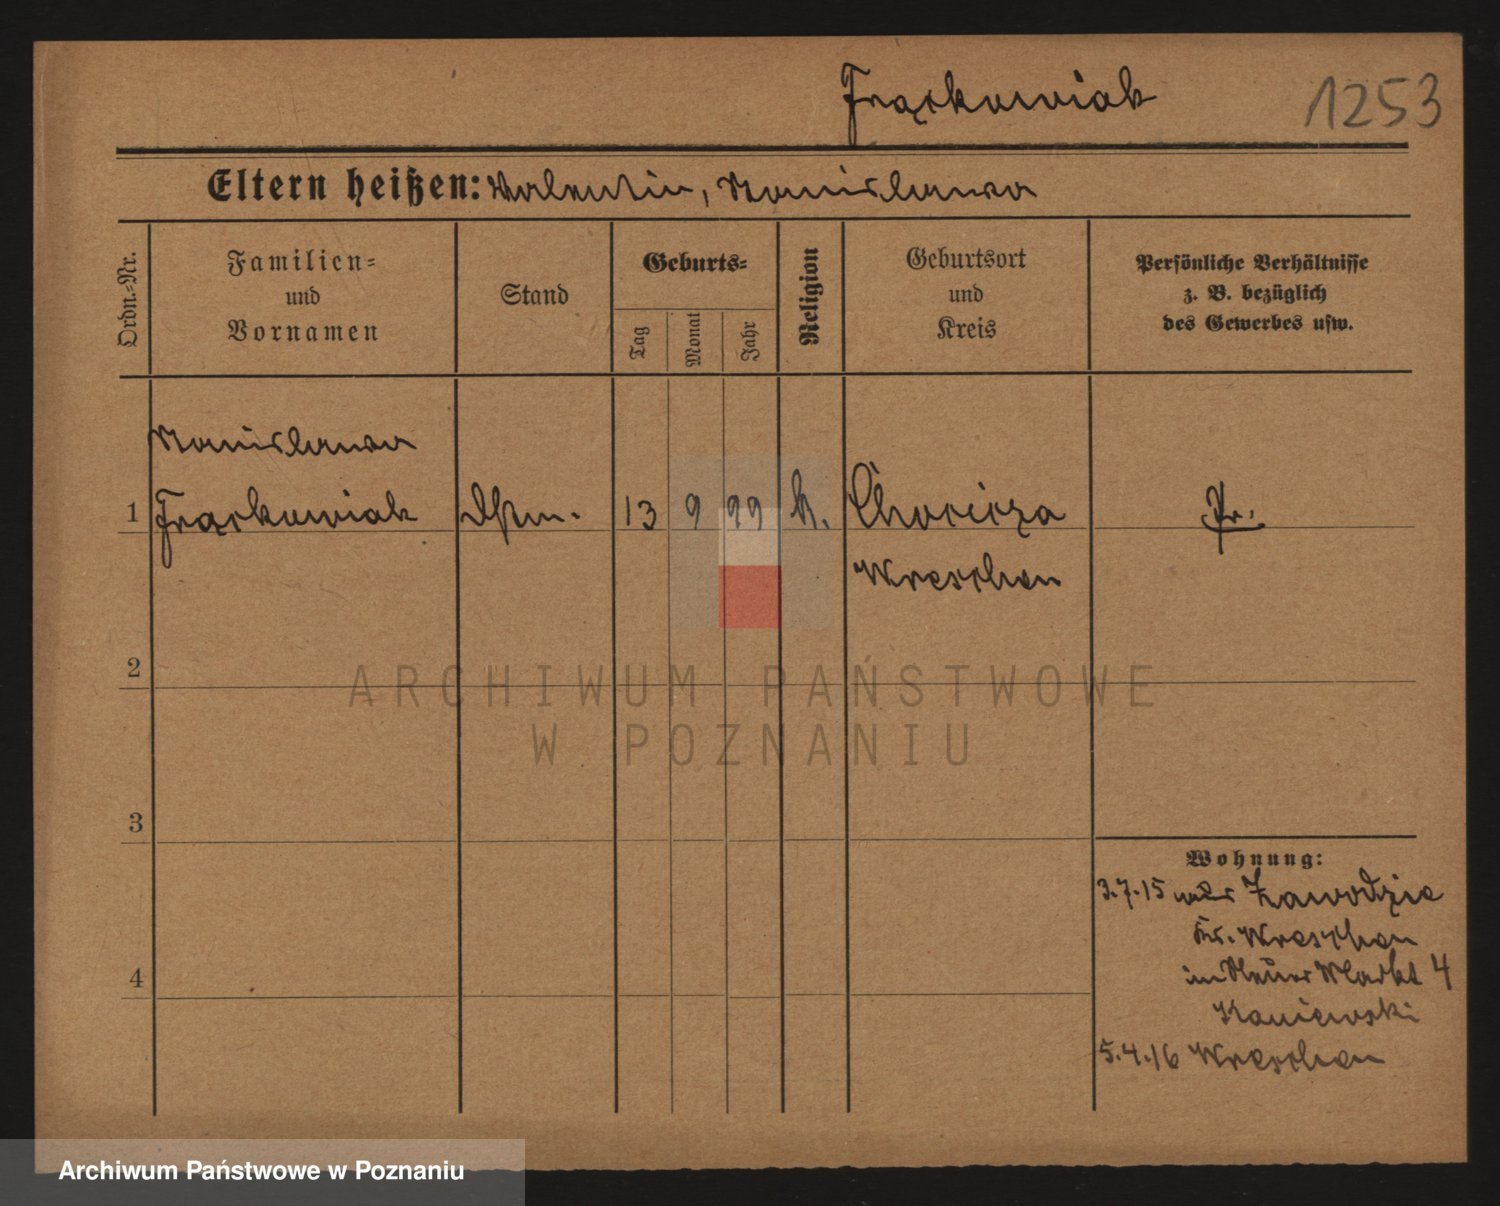 Frąckowiak 1253
Eltern heißen: Valentin, Stanislawa
Ordn.-Nr.
Familien-
und
Vornamen
Stand
Geburts-
Tag
Monat
Jahr
Religion
Geburtsort
und
Kreis
Persönliche Verhältnisse
z. B. bezüglich
des Gewerbes usw.
Stanislawa
1 Frąckowiak 13 9 99 k. Chocicza Pr.
Wreschen
2
ARCHIWUM PAŃSTWOWE
W POZNANIU
3
Wohnung:
3.7.15 Zawodzie
Kr. Wreschen
in Neuer Markt 4
Kaniewski
4
5.4.16 Wreschen
Archiwum Państwowe w Poznaniu